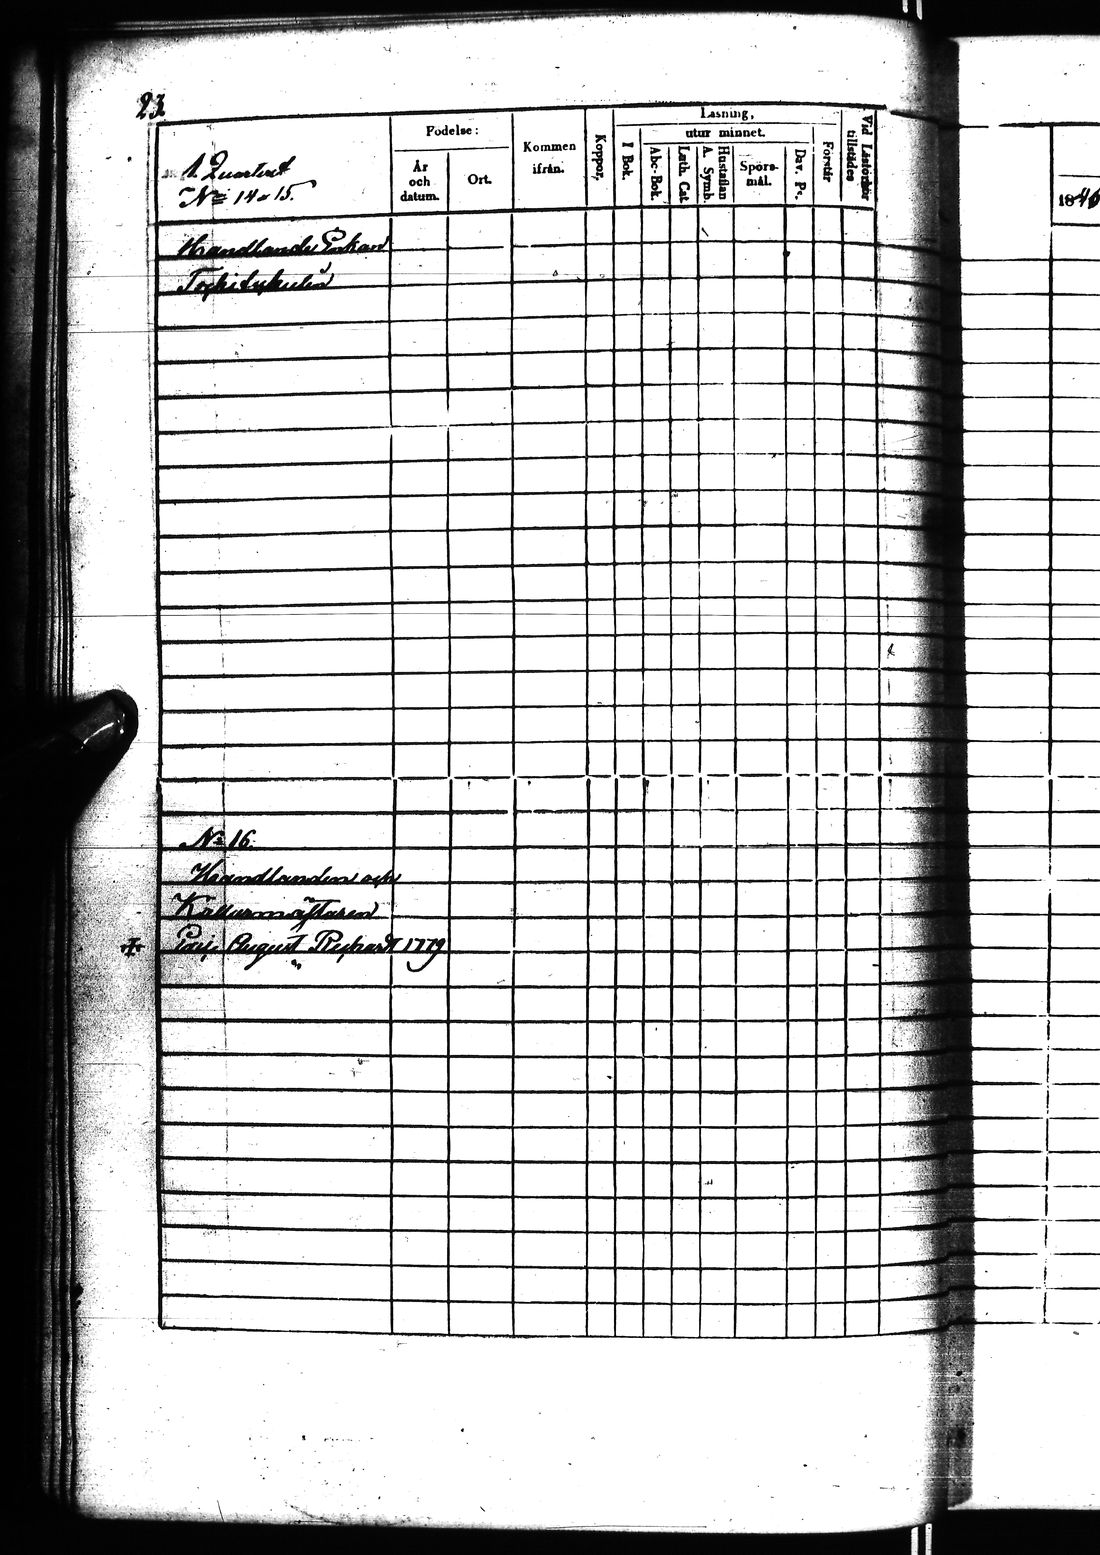 23
1. Quartert
No 14 o 15.
Födelse:
År och datum.
Ort.
Kommen ifrån.
Koppor.
Läsning,
utur minnet.
I Bok.
Abc-Bok.
Luth. Cat
Hustaflan A. Symb.
Spörsmål.
Dav. Ps.
Förstår
Vid Läsförhör tillstädes
1846
Handlande Enkan
No 16.
Handlanden och
Källarmästaren
August 1779